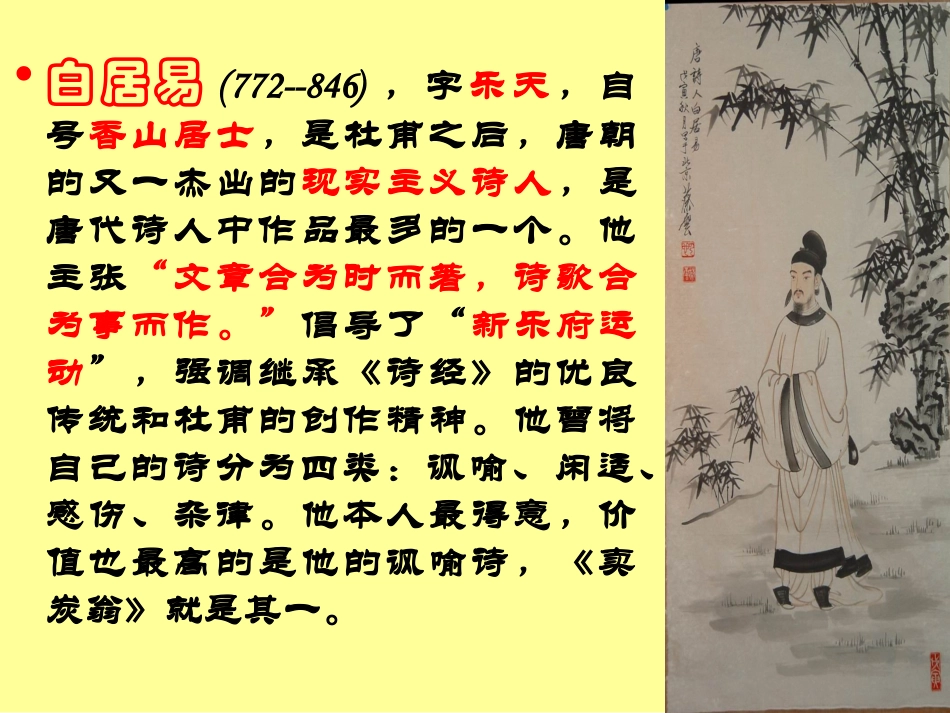 • 白居易 (772--846) ，字乐天，自
号香山居士，是杜甫之后，唐朝
的又一杰出的现实主义诗人，是
唐代诗人中作品最多的一个。他
主张“文章合为时而著，诗歌合
为事而作。”倡导了“新乐府运
动”，强调继承《诗经》的优良
传统和杜甫的创作精神。他曾将
自己的诗分为四类：讽喻、闲适、
感伤、杂律。他本人最得意，价
值也最高的是他的讽喻诗，《卖
炭翁》就是其一。
唐诗人白居易